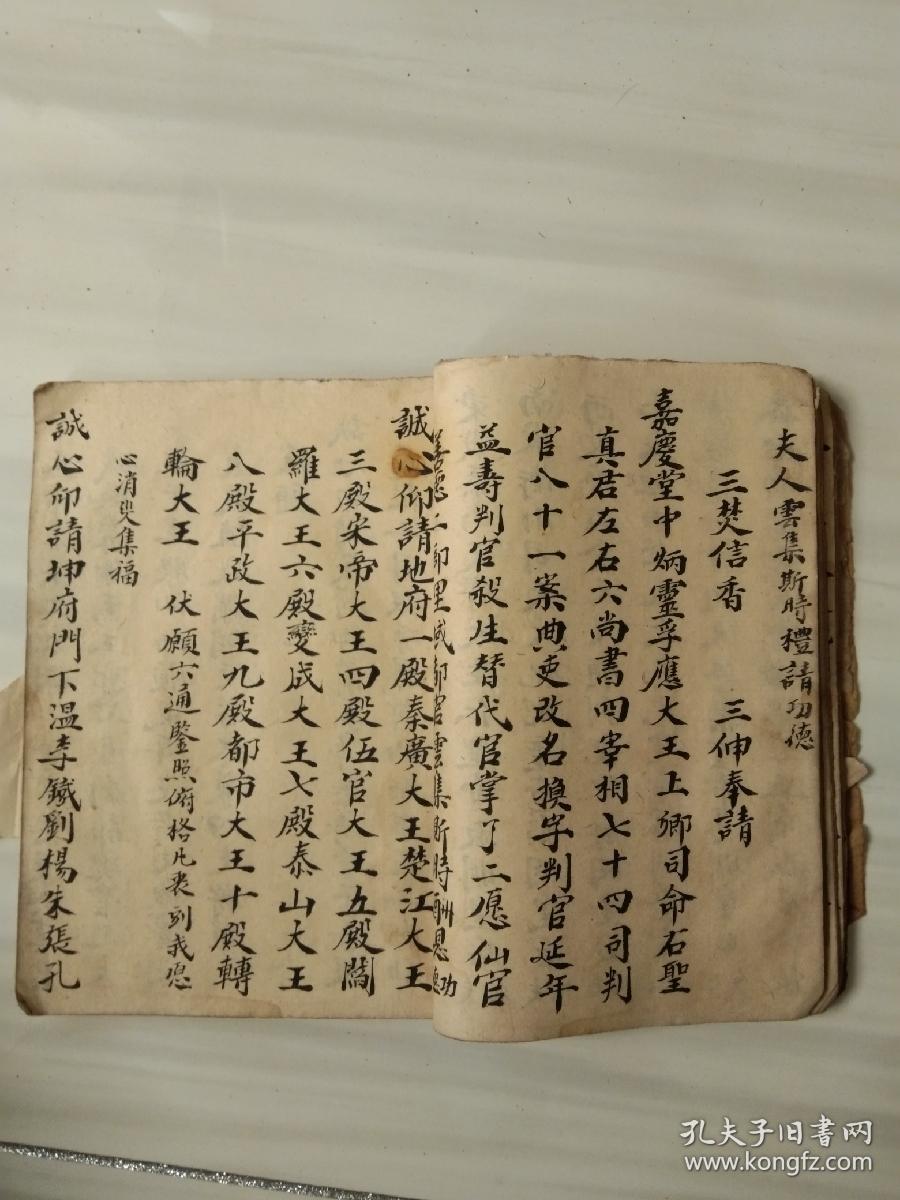 夫人雲集斯時禮請功德
三焚信香　三伸奉請
嘉慶堂中炳靈孚應大王上卿司命右聖
真君左右六尚書四宰相七十四司判
官八十一案典吏改名換字判官延年
益壽判官殺生替代官掌了二愿仙官
雲集斯時酬恩
誠心仰請地府一殿秦廣大王楚江大王
三殿宋帝大王四殿伍官大王五殿閻
羅大王六殿變成大王七殿泰山大王
八殿平政大王九殿都市大王十殿轉
輪大王　伏願六通鑒照俯格凡衷到我愿
心消災集福
誠心仰請坤府門下温李鐵劉楊朱張孔
孔夫子旧书网
www.kongfz.com